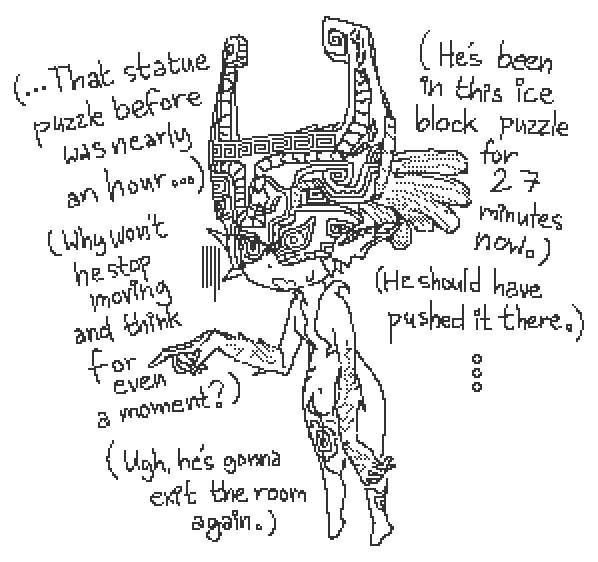 (...That statue
puzzle before
was nearly
an hour...)
(He's been
in this ice
block puzzle
for
27
minutes
now.)
(Why won't
he stop
moving
and think
for
even
a moment?)
(He should have
pushed it there.)
(Ugh, he's gonna
exit the room
again.)